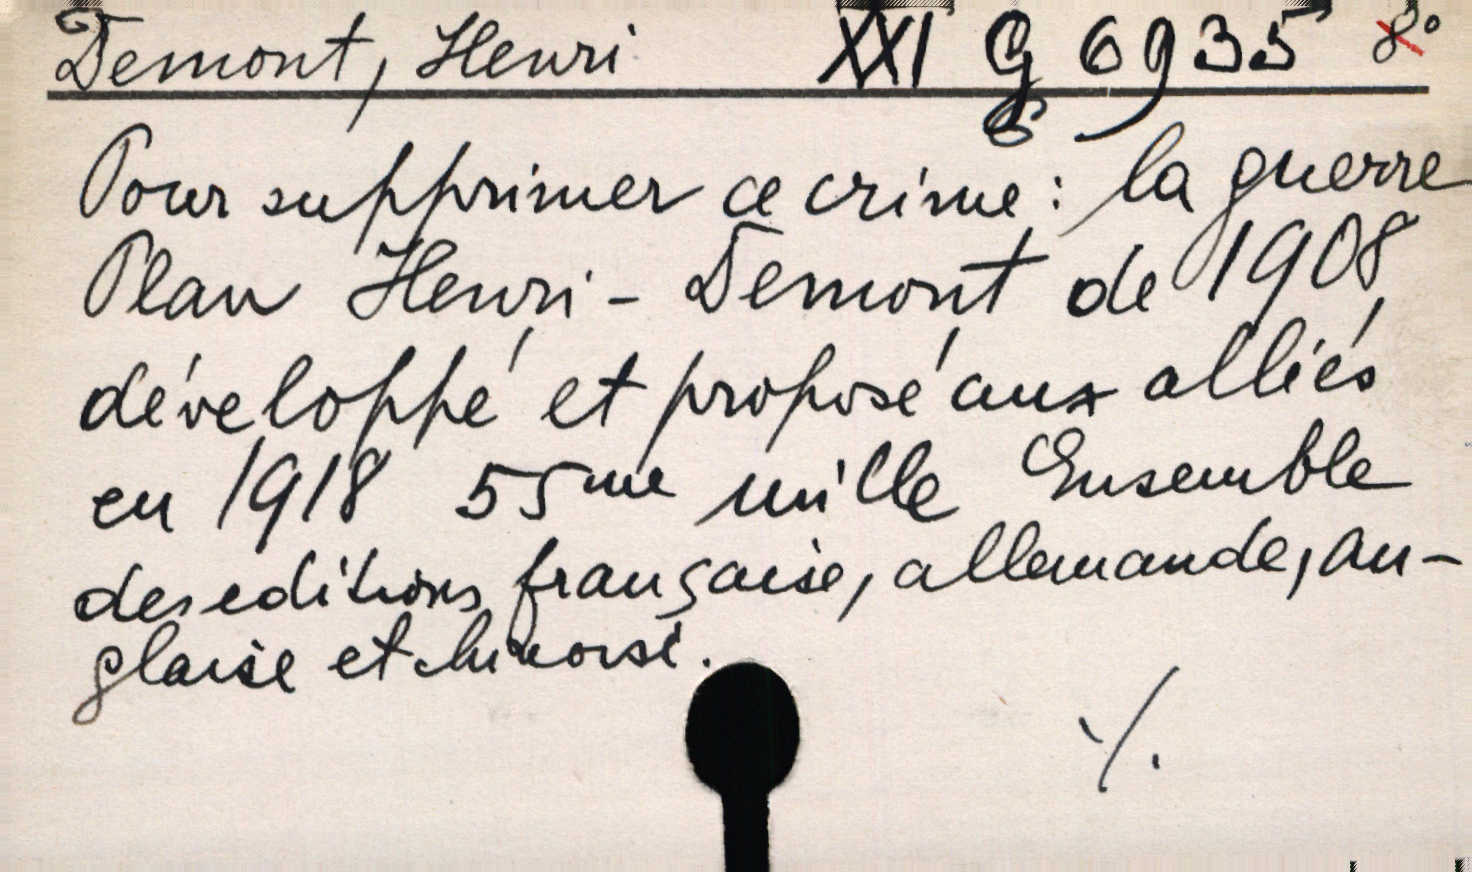 Demont, Henri XXI G 6935 8°
Pour supprimer ce crime: la guerre
Plan Henri-Demont de 1908,
développé et proposé aux alliés
en 1918 55me mille Ensemble
des editions française, allemande, an-
glaise et chinoise.
./.